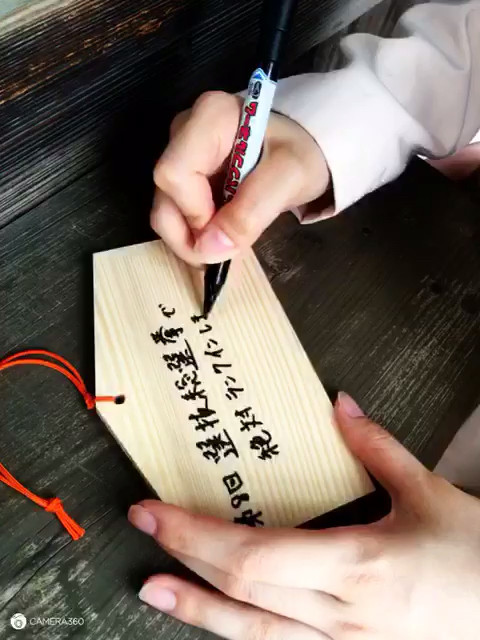 第8回 選抜総選挙で
絶対ランクインしま
CAMERA360